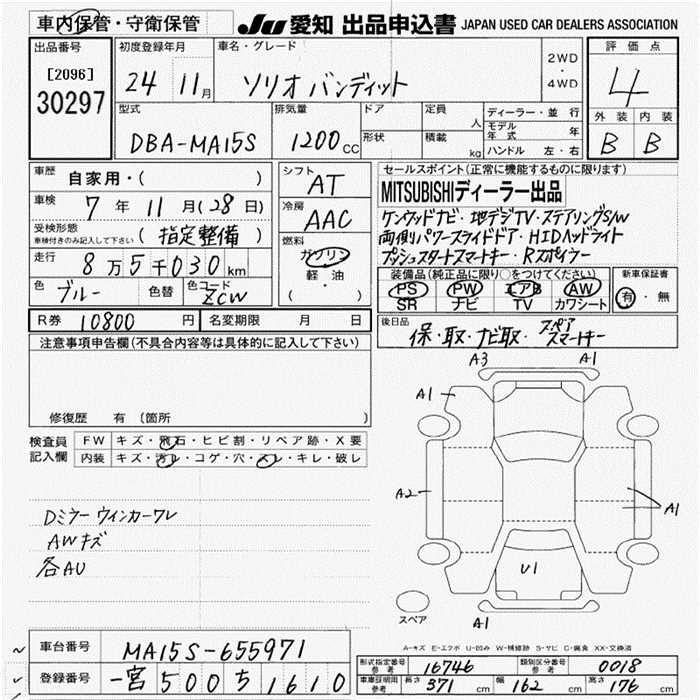 車内保管・守衛保管
JU 愛知 出品申込書 JAPAN USED CAR DEALERS ASSOCIATION
出品番号
[2096]
30297
初度登録年月
24 11月
車名・グレード
ソリオ バンディット
2WD
・
4WD
評価点
4
外装 内装
B B
型式
DBA-MA15S
排気量
1200cc
ドア
形状
定員 人
積載 kg
ディーラー・並行
モデル年式 年
ハンドル 左・右
車歴
自家用・( )
車検 7年 11月(28日)
受検形態
車検付きのみ記入して下さい (指定整備)
走行 8万5千030km
色 ブルー 色替 色コード ZCW
シフト
AT
冷房
AAC
燃料
ガソリン
軽油
( )
セールスポイント(正常に機能するものに限ります)
MITSUBISHIディーラー出品
ケンウッドナビ・地デジTV・ステアリングS/W
両側パワースライドドア・HIDヘッドライト
プッシュスタートスマートキー・Rスポイラー
装備品(純正品に限り○をつけてください)
PS PW エアB AW
SR ナビ TV カワシート
新車保証書
有・無
R券 10800円 名変期限 月 日
後日品
保・取・ナビ取・スペアスマートキー
注意事項申告欄(不具合内容等は具体的に記入して下さい)
修復歴 有 (箇所 )
検査員記入欄
FW キズ・飛石・ヒビ割・リペア跡・X要
内装 キズ・汚レ・コゲ・穴・スレ・キレ・破レ
Dミラーウインカーワレ
AWキズ
各AU
A3 A1
A1
A2
A1
U1
スペア
A1
A-キズ E-エクボ U-凹み W-補修跡 S-サビ C-腐食 XX-交換済
車台番号 MA15S-655971
登録番号 一宮 500 ち 1610
形式指定番号 参考 16746 類別区分番号 参考 0018
車庫証明用 参考 長さ 371cm 幅 162cm 高さ 176cm